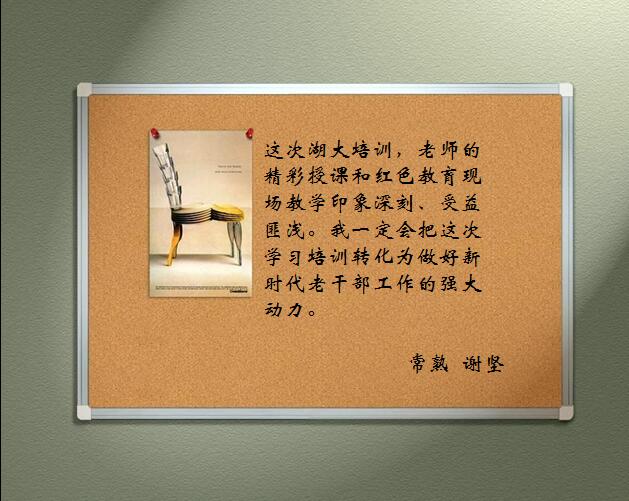 这次湖大培训，老师的
精彩授课和红色教育现
场教学印象深刻、受益
匪浅。我一定会把这次
学习培训转化为做好新
时代老干部工作的强大
动力。
常熟 谢坚